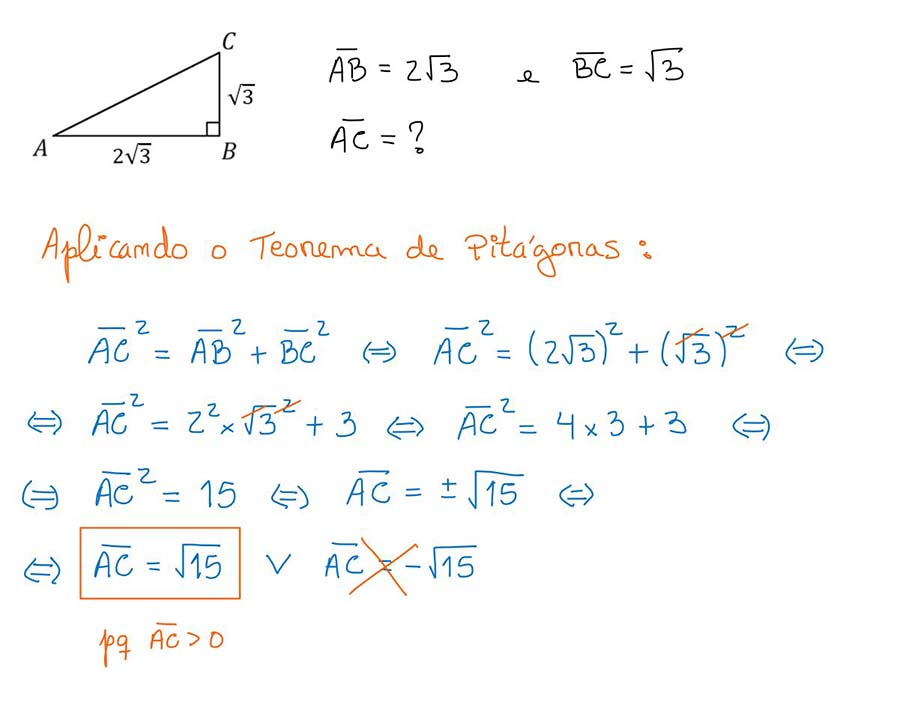 C
A̅B̅ = 2√3 e B̅C̅ = √3
√3
A̅C̅ = ?
A
2√3
B
Aplicando o Teorema de Pitágoras :
A̅C̅² = A̅B̅² + B̅C̅² ⇔ A̅C̅² = (2√3)² + (√3)² ⇔
⇔ A̅C̅² = 2² × √3² + 3 ⇔ A̅C̅² = 4 × 3 + 3 ⇔
⇔ A̅C̅² = 15 ⇔ A̅C̅ = ± √15 ⇔
⇔ A̅C̅ = √15 ∨ A̅C̅ = -√15
pq A̅C̅ > 0